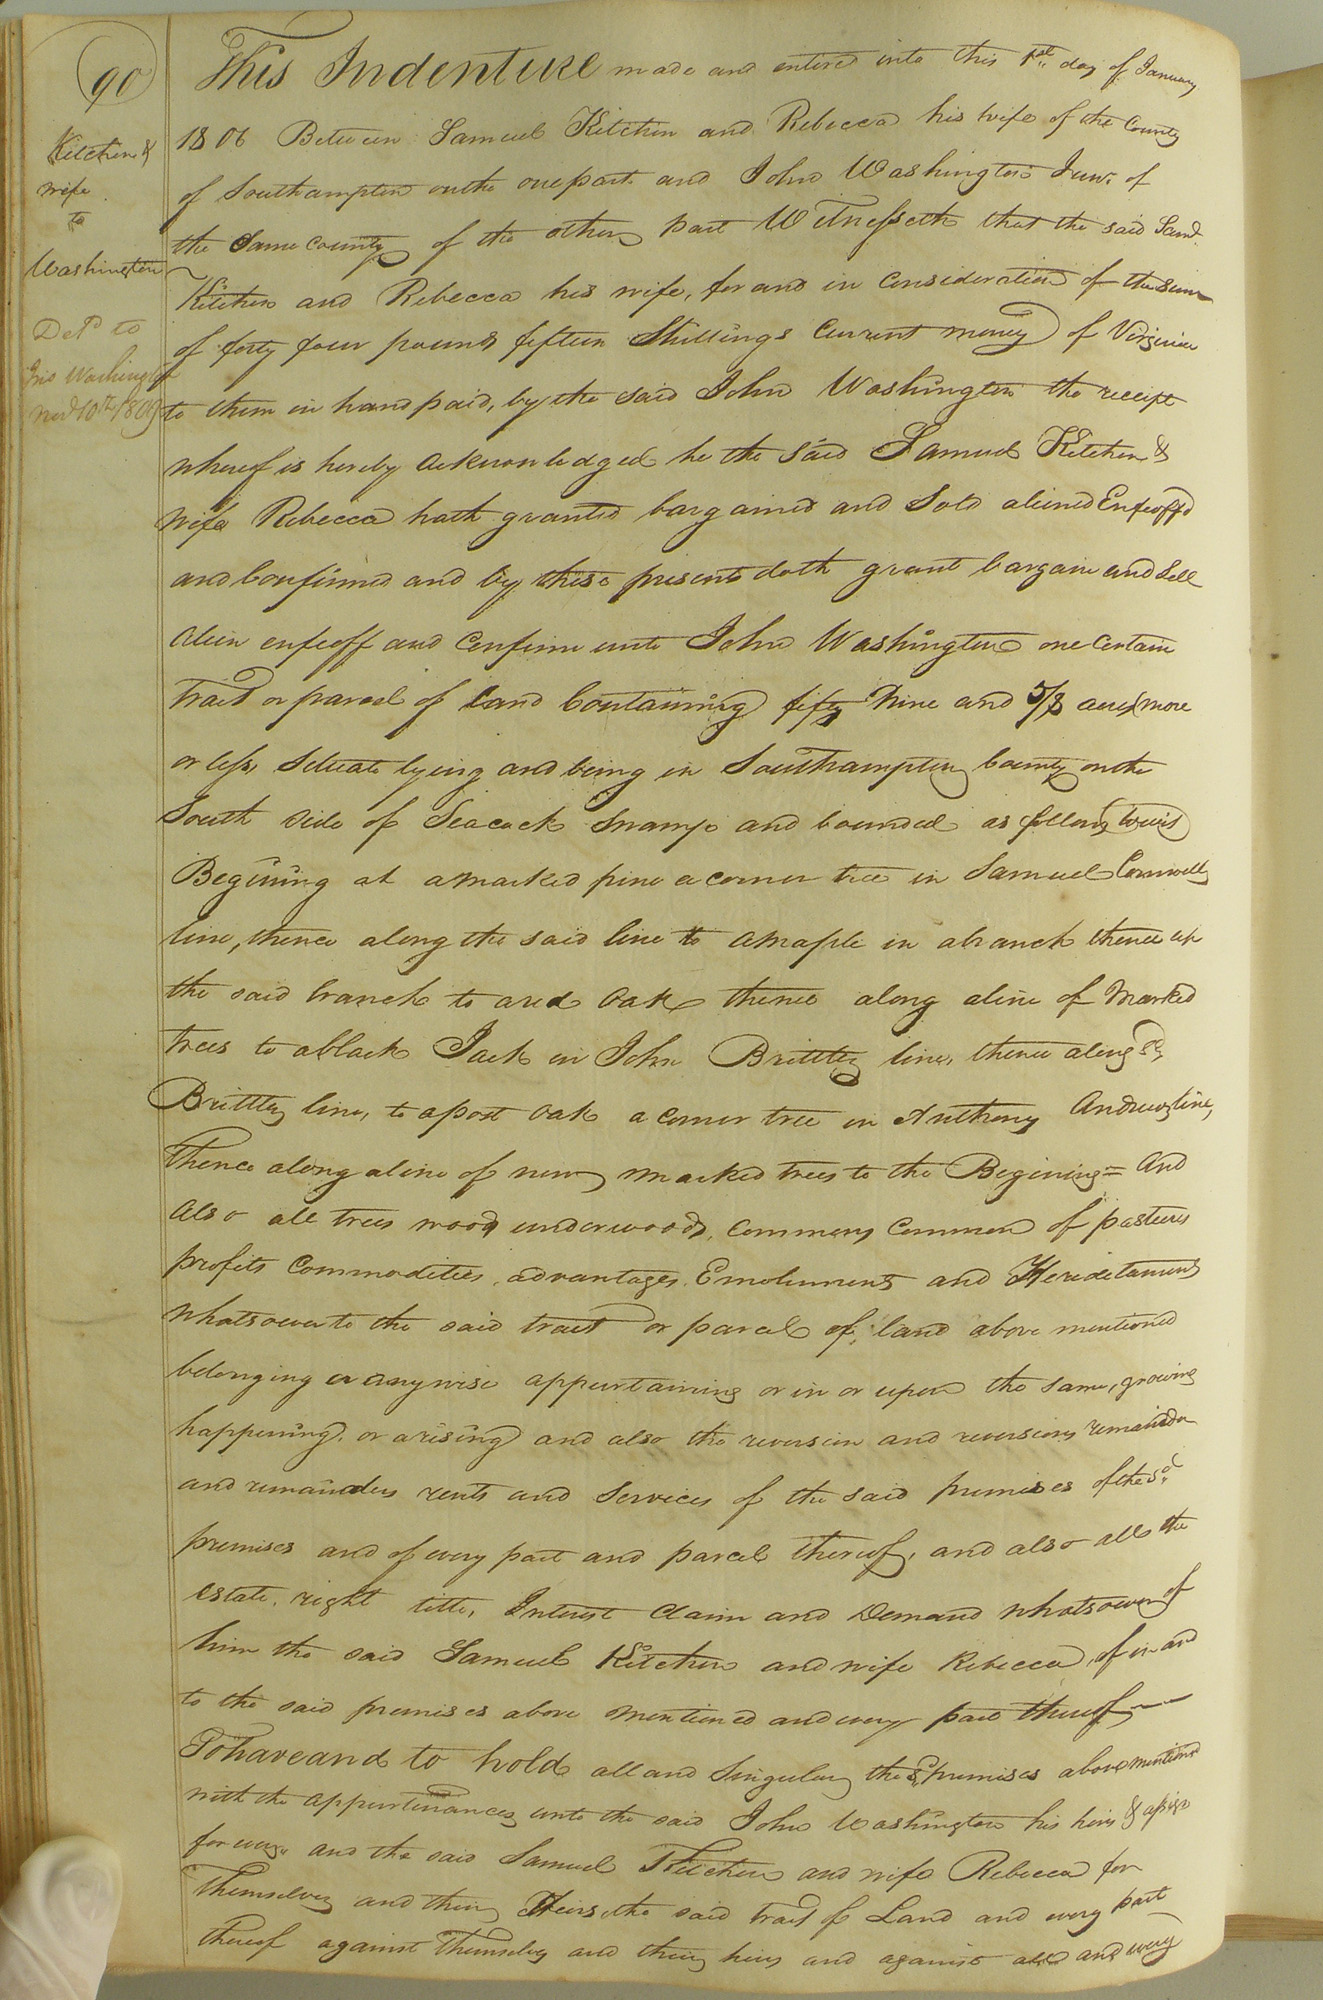 90
Kitchen &
wife
to
Washington
Deld to
Jno Washington
Novr 10th 1809
This Indenture made and entered into this 1st day of January
1806 Between Samuel Kitchen and Rebecca his wife of the County
of Southampton on the one part and John Washington Junr. of
the same county of the other part Witnesseth that the said Saml.
Kitchen and Rebecca his wife, for and in consideration of the sum
of forty four pounds fifteen Shillings Current money of Virginia
to them in hand paid, by the said John Washington the receipt
whereof is hereby acknowledged he the said Samuel Kitchen &
wife Rebecca hath granted bargained and Sold aliened Enfeoff'd
and Confirmed and by these presents doth grant bargain and Sell
alien enfeoff and Confirm unto John Washington one certain
Tract or parcel of Land Containing fifty Nine and 5/8 acres more
or less, Situate lying and being in Southampton County on the
South side of Seacock Swamp and bounded as follows (towit)
Begining at a marked pine a corner tree in Samuel Cornwells
line, thence along the said line to a maple in a branch thence up
the said branch to a red Oak thence along a line of Marked
trees to a black Jack in John Brittles line, thence along sd.
Brittles line, to a post Oak a corner tree in Anthony Andrews line,
thence along a line of new marked trees to the Begining = And
also all trees woods underwoods, commons common of pastures
profits Commodities, advantages, Emoluments and Hereditaments
whatsoever to the said tract or parcel of land above mentioned
belonging or anywise appurtaining or in or upon the same, growing
happening, or arising and also the reversion and reversions remainder
and remainders rents and Services of the said premises of the sd.
premises and of every part and parcel thereof, and also all the
estate, right title, Interest Claim and Demand whatsoever of
him the said Samuel Kitchen and wife Rebecca, of in and
to the said premises above mentioned and every part thereof
To have and to hold all and Singular the sd. premises above mentiond
with the appurtenances, unto the said John Washington his heirs & assigns
for ever. and the said Samuel Kitchen and wife Rebecca for
Themselves and their Heirs, the said tract of Land and every part
thereof against Themselves and their heirs and against all and every